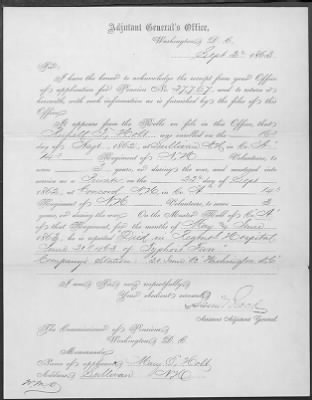 Adjutant General's Office,
Washington, D. C.
Sept 2d 1863.
Sir:
I have the honor to acknowledge the receipt from your Office
of application for Pension No. 27767, and to return it
herewith, with such information as is furnished by the files of this
Office.
It appears from the Rolls on file in this Office, that
Holt, was enrolled on the
day of Sept, 1862, at Sullivan N.H. in Co. A
14th Regiment of N.H. Volunteers, to serve
3 years, or during the war, and mustered into
service as a on the 22d day of Sept
1862, at Concord N.H. in Co. A 14th
Regiment of N.H. Volunteers, to serve 3
years, or during the war. On the Muster Roll of Co. A
of that Regiment, for the months of May & June
1863, he is reported Died in Hospital
June 1863 of Typhoid
Company's Station Washington D.C.
I am, Sir, very respectfully,
Your obedient servant,
Assistant Adjutant General.
The Commissioner of Pensions
Washington, D. C.
Memoranda:
Name of applicant, Mary Holt
Address, Sullivan N.H.